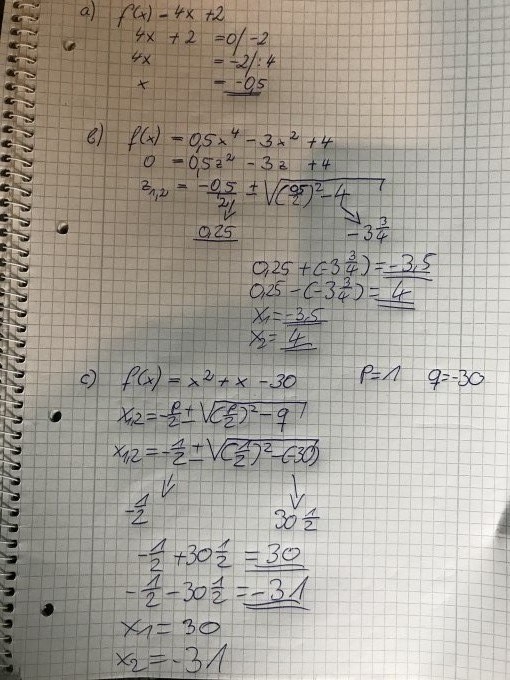 a) f(x) = 4x + 2
4x + 2 = 0 / -2
4x = -2 / : 4
x = -0,5
b) f(x) = 0,5x⁴ - 3x² + 4
0 = 0,5z² - 3z + 4
z₁,₂ = -0,5/2 ± √((0,5/2)² - 4)
0,25 -3 3/4
0,25 + (-3 3/4) = -3,5
0,25 - (-3 3/4) = 4
x₁ = -3,5
x₂ = 4
c) f(x) = x² + x - 30 P=1 q=-30
x₁,₂ = -p/2 ± √((p/2)² - q)
x₁,₂ = -1/2 ± √((1/2)² - (-30))
-1/2 30 1/2
-1/2 + 30 1/2 = 30
-1/2 - 30 1/2 = -31
x₁ = 30
x₂ = -31